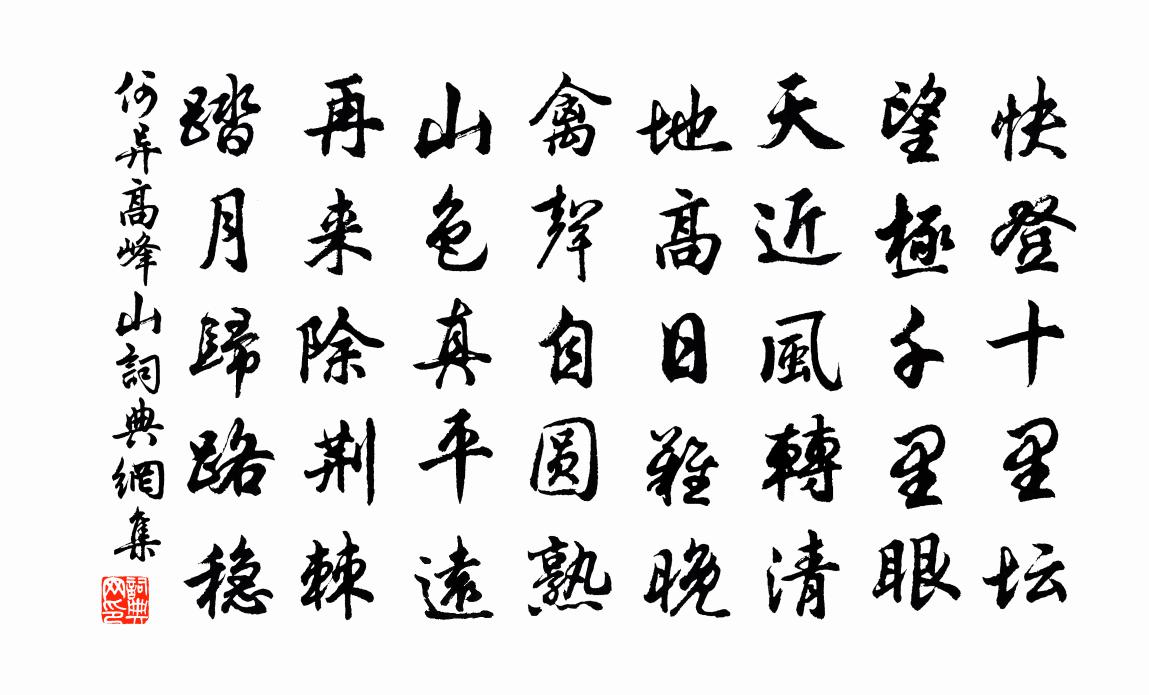 快登十里坛
望極千里眼
天近風轉清
地高日難晚
禽聲自圆熟
山色真平遠
再来除荆棘
踏月歸路稳
何异高峰山詞典網集
詞典网印